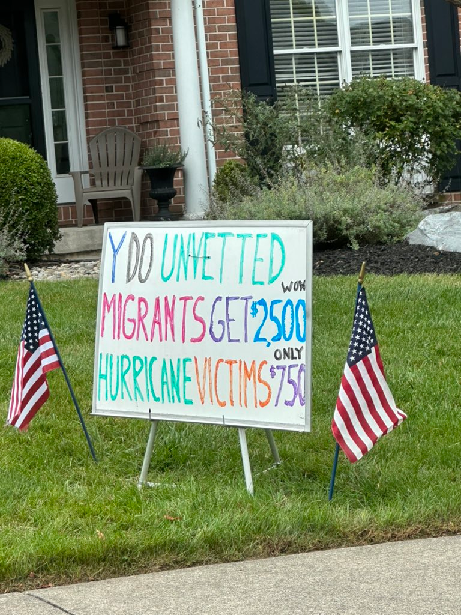 Y DO UNVETTED
WOW
MIGRANTS GET $2,500
ONLY
HURRICANE VICTIMS $750